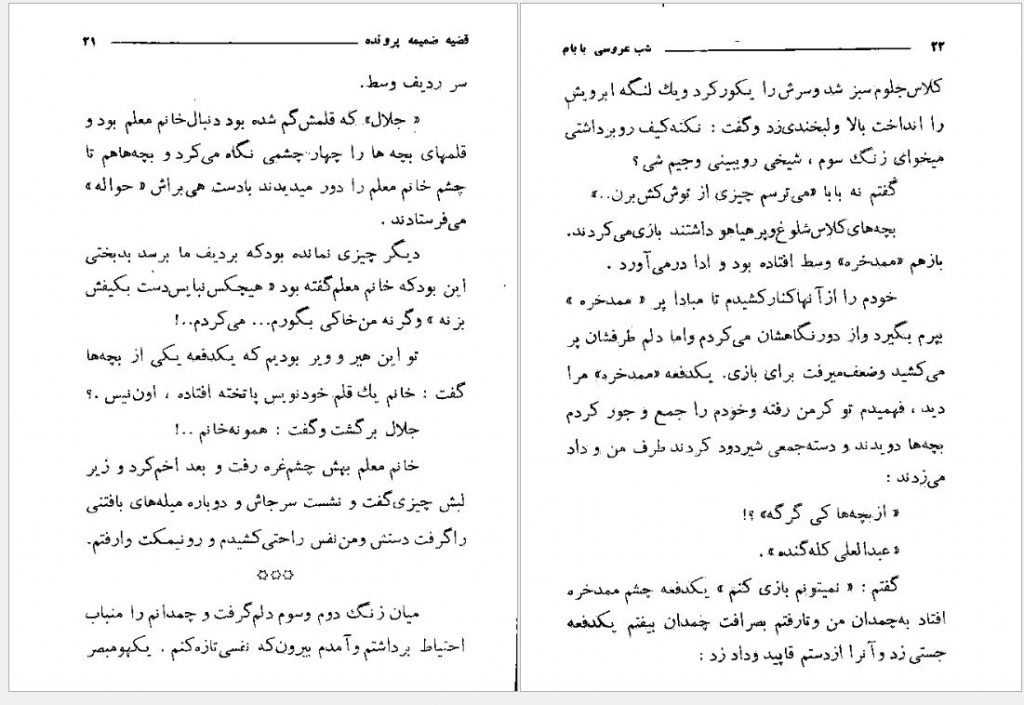 قضیه ضمیمه پرونده ۲۱
سر ردیف وسط.
« جلال» که قلمش گم شده بود دنبال خانم معلم بود و
قلمهای بچه ها را چهار چشمی نگاه می‌کرد و بچه‌هاهم تا
چشم خانم معلم را دور میدیدند بادست هی‌براش « حواله»
می‌فرستادند .
دیگر چیزی نمانده بود‌که بردیف ما برسد بدبختی
این بود‌که خانم معلم گفته بود « هیچکس نبایس دست بکیفش
بزنه » وگرنه من‌خاکی بگورم... می‌کردم..!
تو این هیر و ویر بودیم که یکدفعه یکی از بچه‌ها
گفت : خانم یك قلم خودنویس پاتخته افتاده ، اون‌نیس .؟
جلال برگشت وگفت : همونه‌خانم ..!
خانم معلم بهش چشم‌غره رفت و بعد اخم‌کرد و زیر
لبش چیزی‌گفت و نشست سرجاش و دوباره میله‌های بافتنی
راگرفت دستش ومن‌نفس راحتی‌کشیدم و رونیمکت وارفتم.
✡✡✡
میان زنگ دوم وسوم دلم‌گرفت و چمدانم را منباب
احتیاط برداشتم وآمدم بیرون‌که نفسی‌تازه‌کنم . یکهومبصر
شب عروسی بابام ۲۲
کلاس‌جلوم سبز شد وسرش را یکور‌کرد ویك لنگه ابرویش
را انداخت بالا ولبخندی‌زد وگفت : نکنه‌کیف روبرداشتی
میخوای زنگ سوم ، شیخی رویبینی وجیم شی؟
گفتم نه بابا «می‌ترسم چیزی از توش‌کش‌برن..»
بچه‌های‌کلاس‌شلوغ‌وپرهیاهو داشتند بازی‌می‌کردند.
بازهم «ممدخره» وسط افتاده بود و ادا درمی‌آورد .
خودم را از آنهاکنار‌کشیدم تا مبادا پر « ممدخره »
بپرم بگیرد واز دورنگاهشان می‌کردم واما دلم طرفشان پر
می‌کشید وضعف‌میرفت برای بازی. یکدفعه «ممدخره» مرا
دید ، فهمیدم تو کرمن رفته وخودم را جمع و جور کردم
بچه‌ها دویدند و دسته‌جمعی شیردود کردند طرف من و داد
می‌زدند :
« از‌بچه‌ها کی گرگه» ؟!
«عبدالعلی کله‌گنده» .
گفتم : « نمیتونم بازی کنم » یکدفعه چشم ممدخره
افتاد به‌چمدان من وتارفتم بصرافت چمدان بیفتم یکدفعه
جستی زد وآنرا از‌دستم قاپید وداد زد :